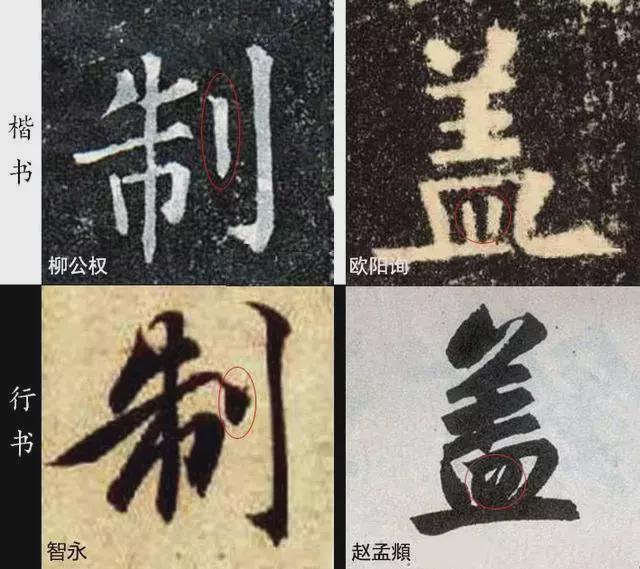 楷书
制
盖
柳公权
欧阳询
行书
制
盖
智永
赵孟頫